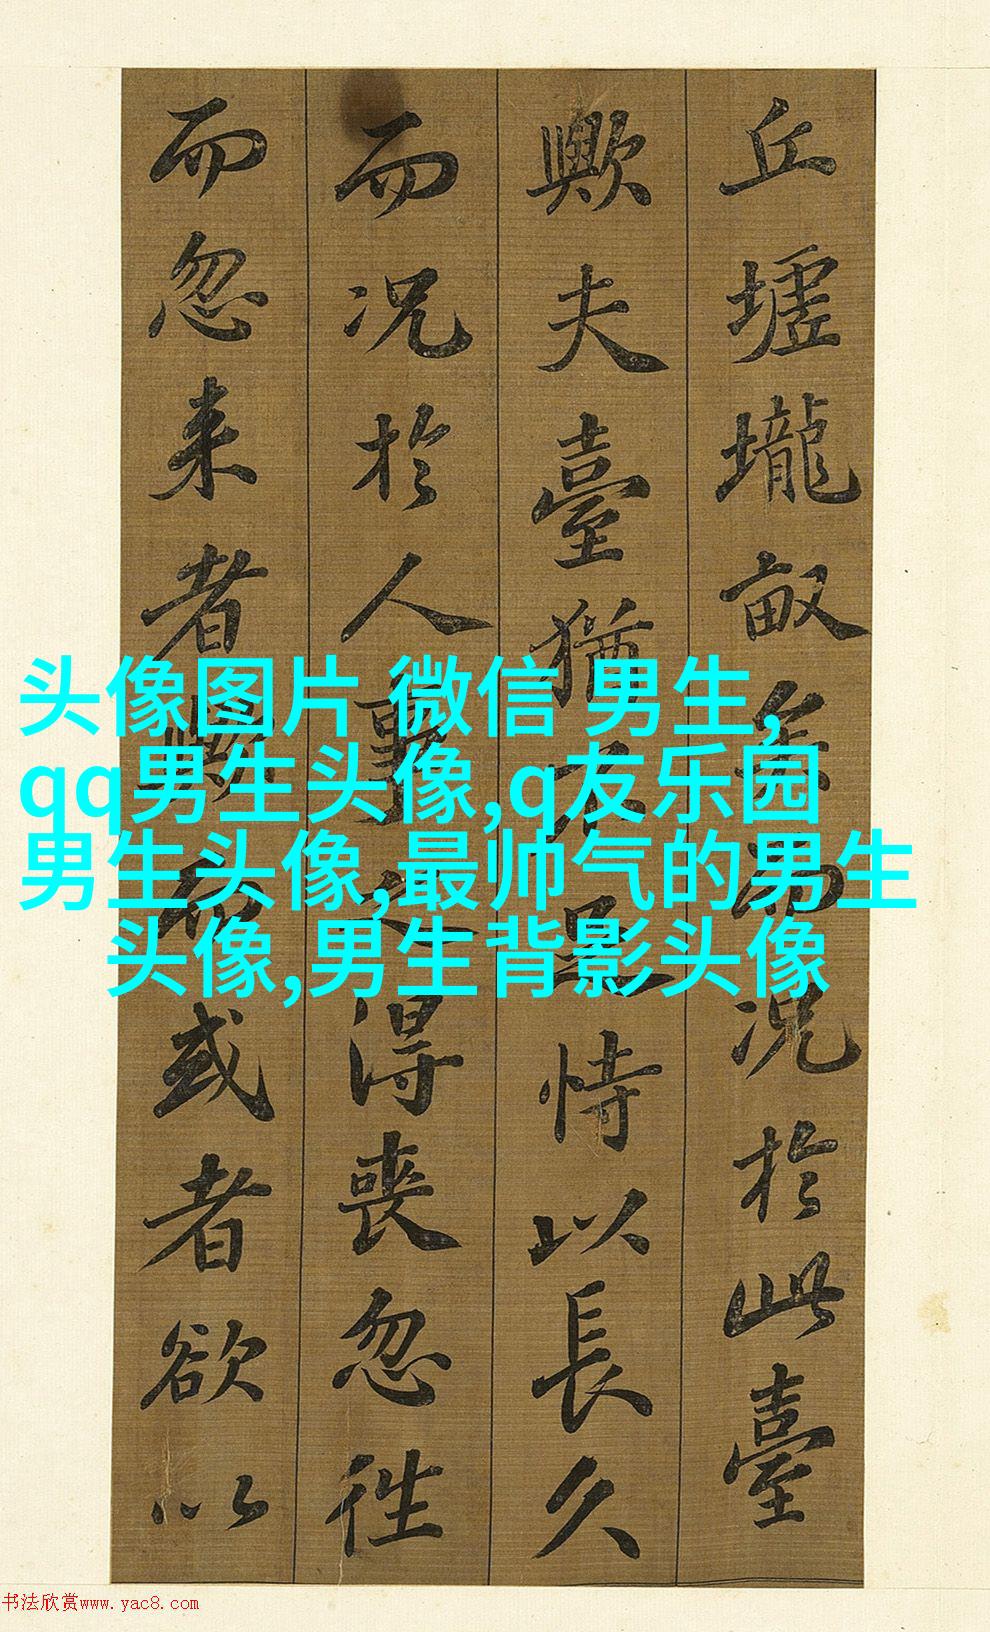 丘墟壠畝矣而况於此臺
歟夫臺猶不足恃以長久
而况於人事之得喪忽徃
而忽来者歟而或者欲以
头像图片 微信 男生,
qq男生头像,q友乐园
男生头像,最帅气的男生
头像,男生背影头像
书法欣赏www.yac8.com